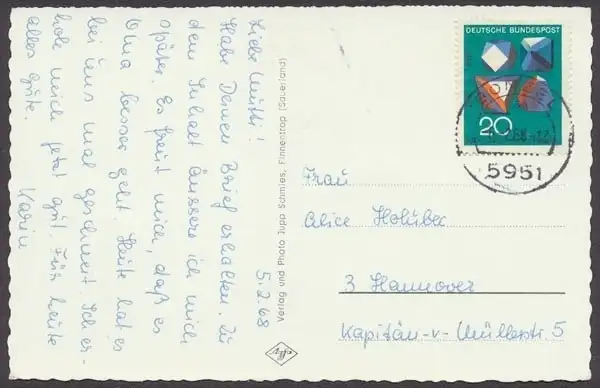 5.2.68
Liebe Mutti!
Habe Deinen Brief erhalten. Zu
dem Inhalt äussere ich mich
später. Es freut mich, daß es
Oma besser geht. Heute hat es
bei uns mal geschneit. Ich er-
hole mich jetzt gut. Für heute
alles gute.
Karin
Verlag und Photo Jupp Schmies, Finnentrop (Sauerland)
Agfa
DEUTSCHE BUNDESPOST
20
5951
Frau
Alice Holubec
3 Hannover
Kapitän-v-Müllerstr. 5